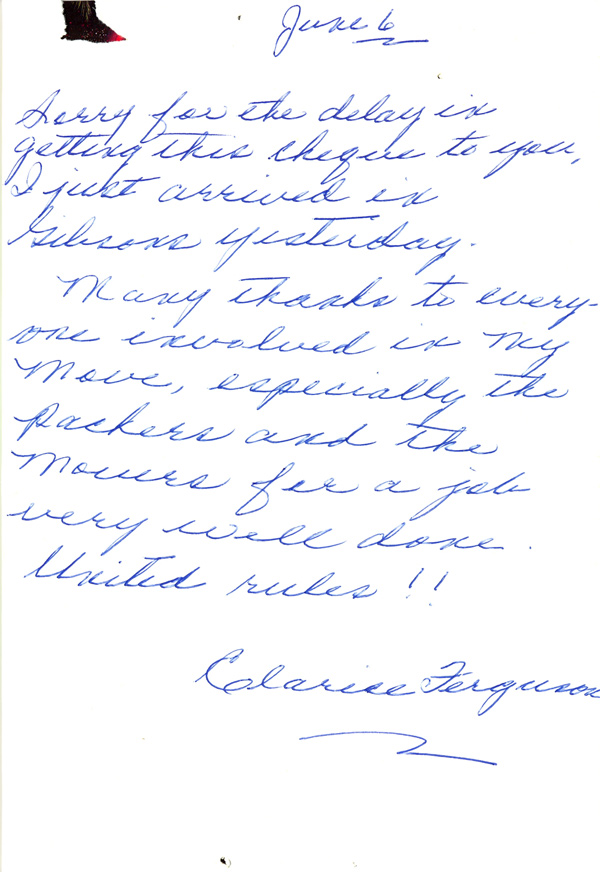 June 6
Sorry for the delay in
getting this cheque to you,
I just arrived in
Gibsons yesterday.
Many thanks to every-
one involved in my
Move, especially the
Packers and the
Movers for a job
very well done.
United rules !!
Clarice Ferguson